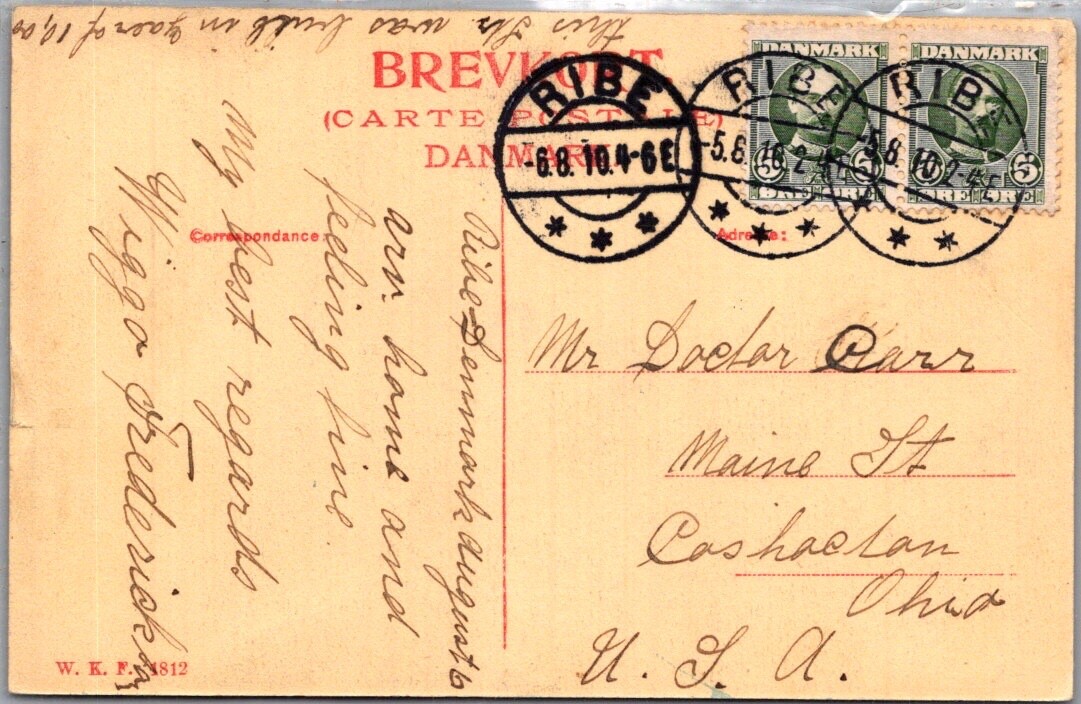 this Str. was built in yaer of 10,00
BREVKORT.
(CARTE POSTALE)
DANMARK
DANMARK
DANMARK
5 5
ØRE ØRE
5 5
ØRE ØRE
RIBE
-6.8.10.4-6E
RIBE
-5.8.10.2-4E
RIBE
-5.8.10.2-4E
Correspondance:
Adresse:
Ribe=Denmark august 6
arv. home and
feeling fine.
My best regards
Wiggo Fredericksen
Mr Doctor Carr
Maine St
Coshocton
Ohio
U. S. A.
W. K. F. 1812